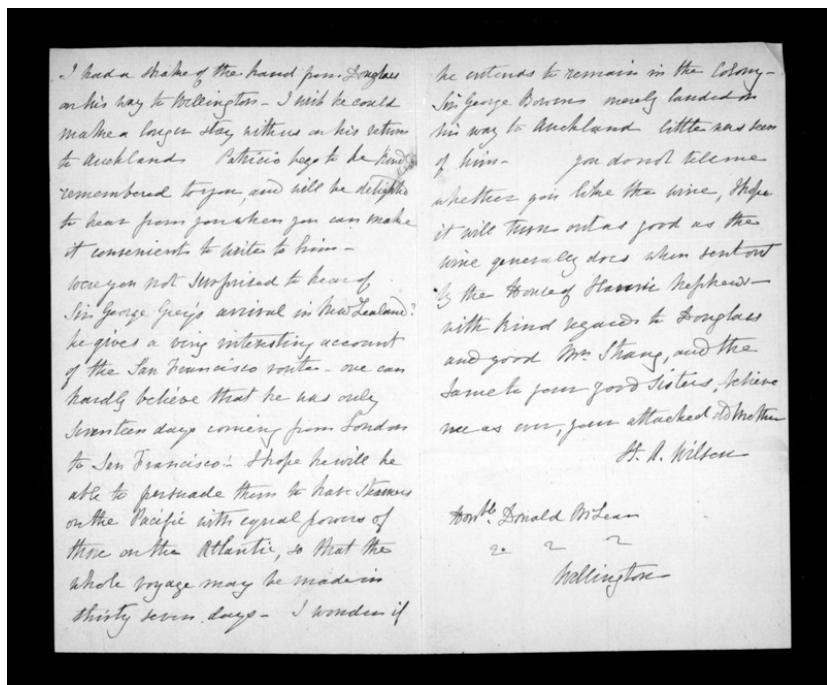 I had a shake of the hand from Douglas
on his way to Wellington - I wish he could
make a longer stay with us on his return
to Auckland Patricio begs to be kindly
remembered to you, and will be delighted
to hear from you when you can make
it convenient to write to him -
were you not surprised to hear of
Sir George Grey's arrival in New Zealand?
he gives a very interesting account
of the San Francisco route - one can
hardly believe that he was only
seventeen days coming from London
to San Francisco - I hope he will be
able to persuade them to have steamers
on the Pacific with equal powers of
those on the Atlantic, so that the
whole voyage may be made in
thirty seven days - I wonder if
he intends to remain in the Colony -
Sir George Bowen merely landed on
his way to Auckland little was seen
of him - you do not tell me
whether you like the wine, I hope
it will turn out as good as the
wine generally does when sent out
by the House of Nephews -
with kind regards to Douglas
and good Mrs Strang, and the
same to your good sisters, believe
me as ever, your attached old Mother
H. A. Wilson
Honble. Donald McLean
Wellington